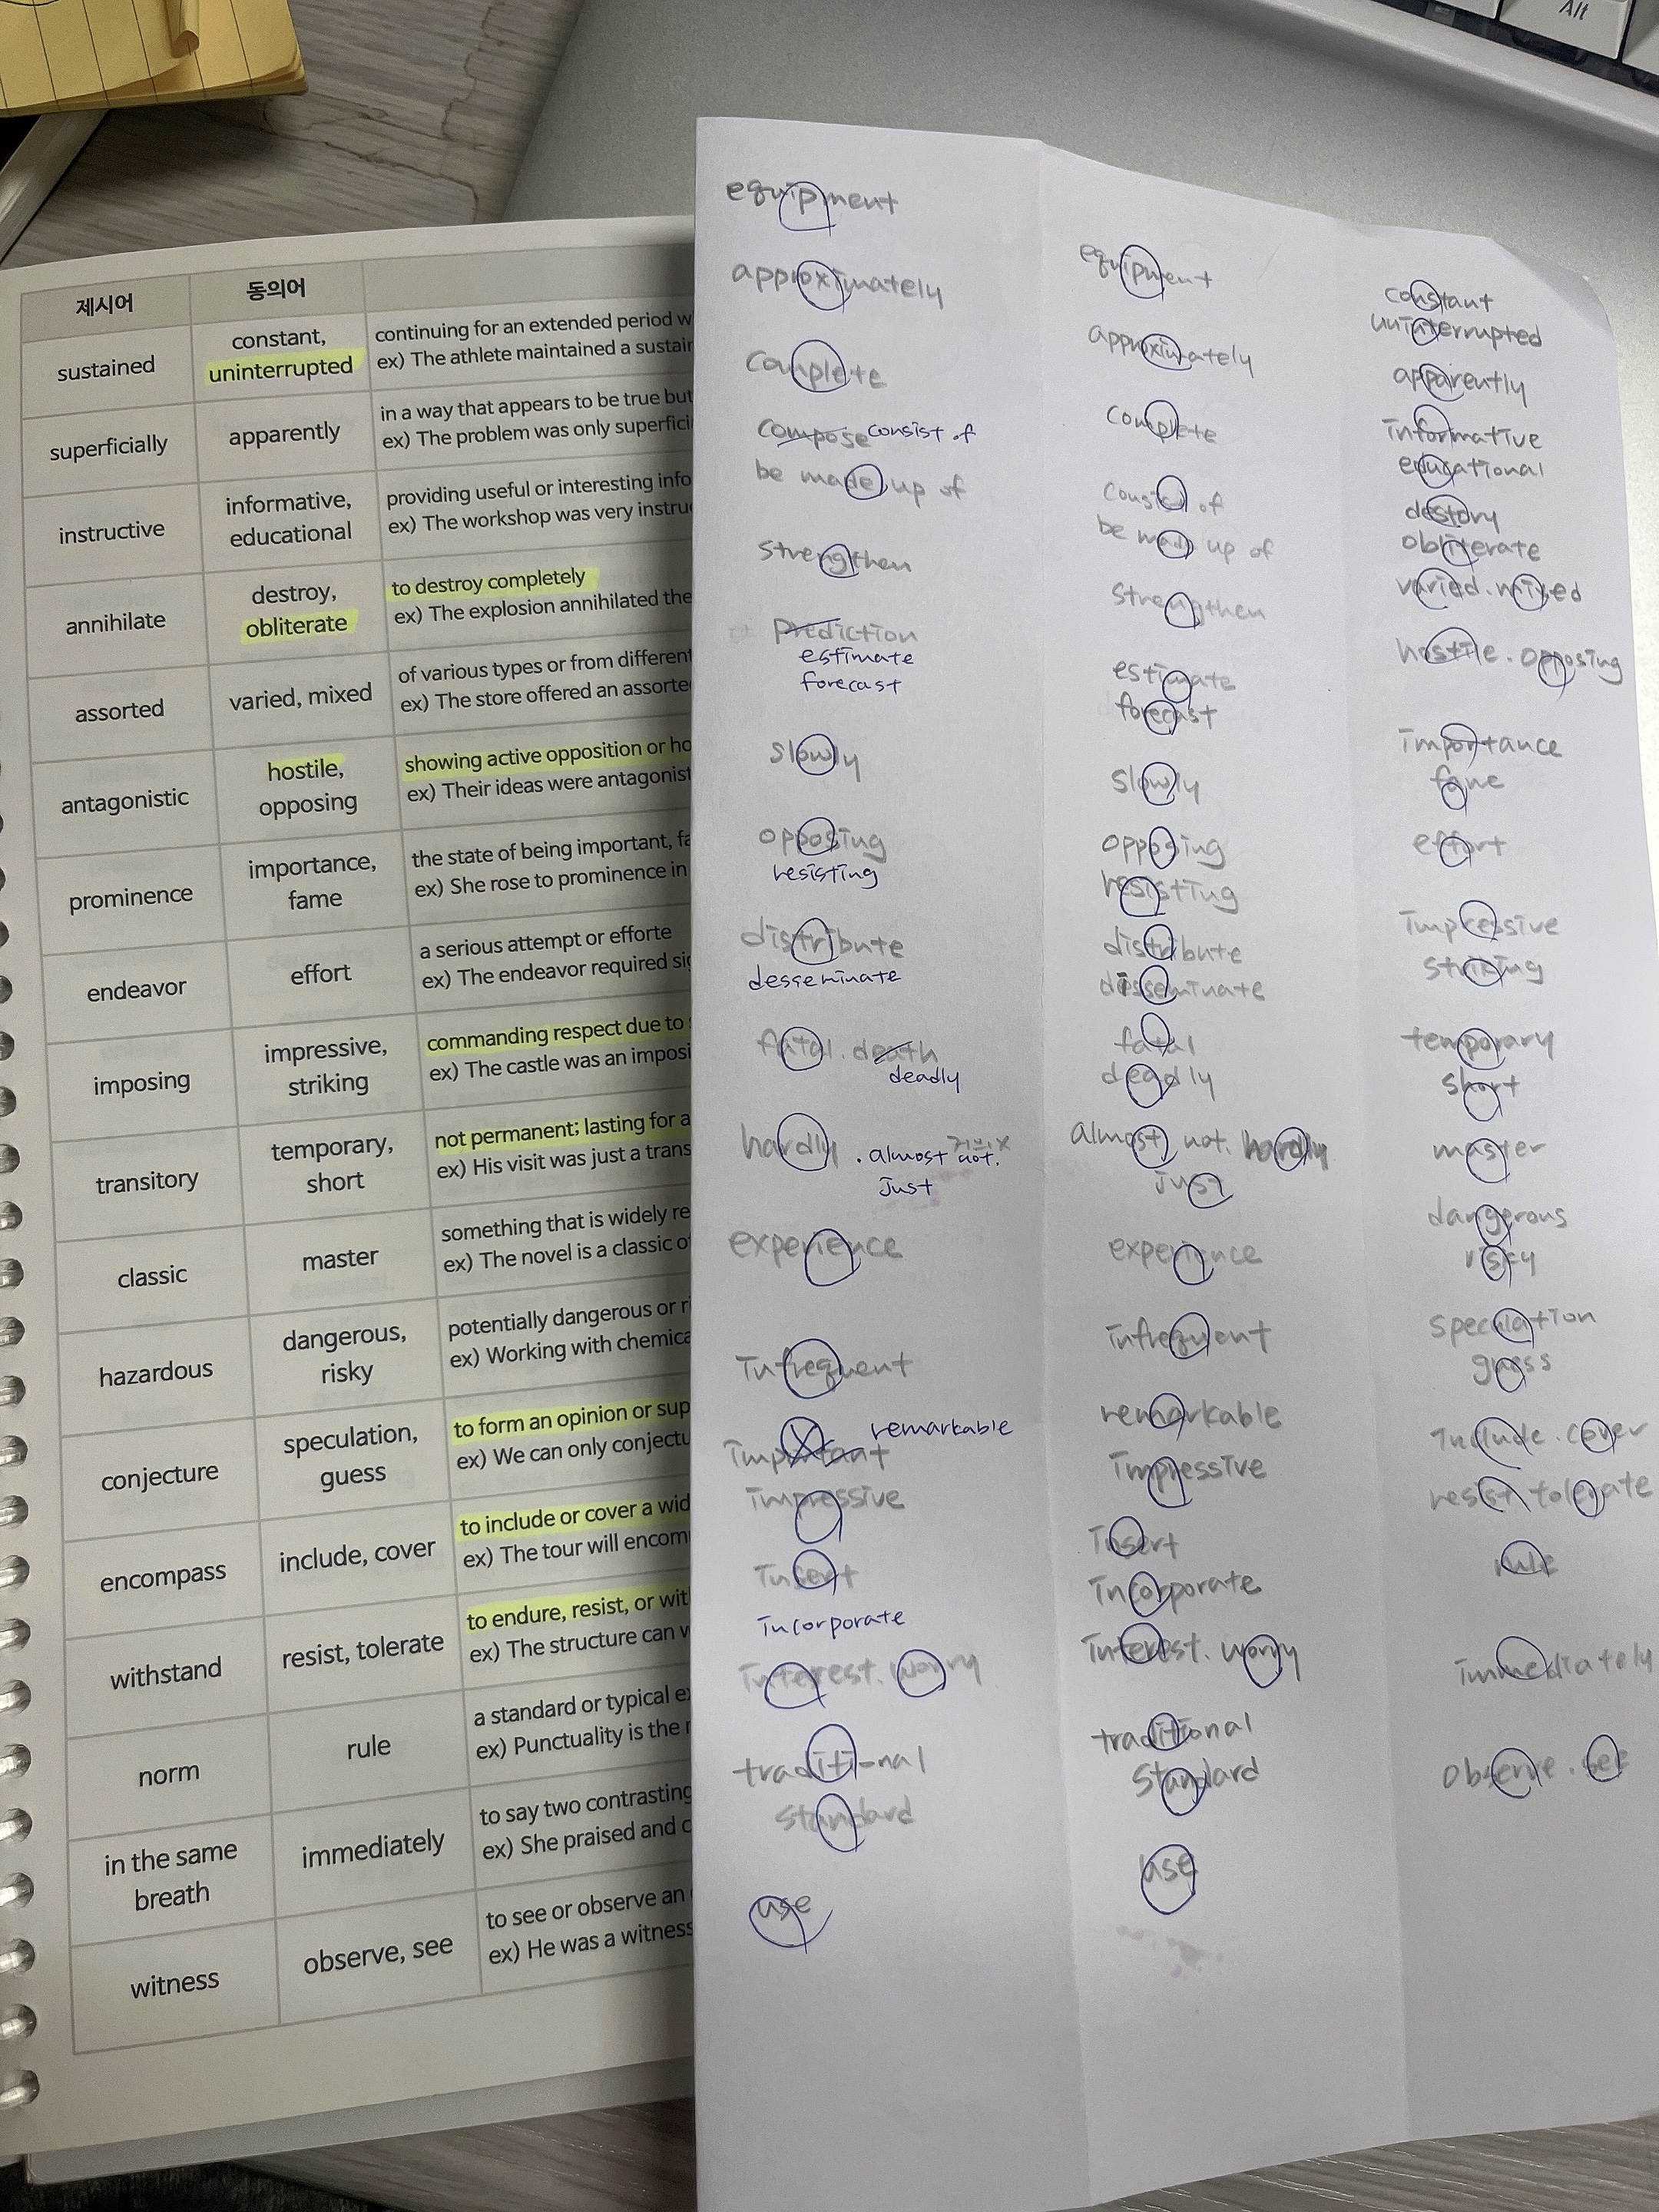 Alt
제시어
동의어
sustained
constant,
uninterrupted
continuing for an extended period w
ex) The athlete maintained a sustain
superficially
apparently
in a way that appears to be true but
ex) The problem was only superfici
instructive
informative,
educational
providing useful or interesting info
ex) The workshop was very instru
annihilate
destroy,
obliterate
to destroy completely
ex) The explosion annihilated the
assorted
varied, mixed
of various types or from different
ex) The store offered an assorte
antagonistic
hostile,
opposing
showing active opposition or ho
ex) Their ideas were antagonist
prominence
importance,
fame
the state of being important, fa
ex) She rose to prominence in
endeavor
effort
a serious attempt or efforte
ex) The endeavor required sig
imposing
impressive,
striking
commanding respect due to s
ex) The castle was an imposi
transitory
temporary,
short
not permanent; lasting for a
ex) His visit was just a trans
classic
master
something that is widely re
ex) The novel is a classic o
hazardous
dangerous,
risky
potentially dangerous or ri
ex) Working with chemica
conjecture
speculation,
guess
to form an opinion or sup
ex) We can only conjectu
encompass
include, cover
to include or cover a wid
ex) The tour will encom
withstand
resist, tolerate
to endure, resist, or wit
ex) The structure can w
norm
rule
a standard or typical ex
ex) Punctuality is the r
in the same
breath
immediately
to say two contrasting
ex) She praised and c
witness
observe, see
to see or observe an
ex) He was a witness
equipment
approximately
complete
compose consist of
be made up of
strengthen
prediction
estimate
forecast
slowly
opposing
resisting
distribute
desseminate
fatal. death
deadly
hardly . almost not.
just
experience
infrequent
remarkable
important
impressive
insert
incorporate
interest. worry
traditional
standard
use
equipment
approximately
complete
consist of
be made up of
strengthen
estimate
forecast
slowly
opposing
resisting
distribute
disseminate
fatal
deadly
almost not. hardly
just
experience
infrequent
remarkable
impressive
insert
incorporate
interest. worry
traditional
standard
use
constant
uninterrupted
apparently
informative
educational
destory
obliterate
varied. mixed
hostile. opposing
importance
fame
effort
impressive
striking
temporary
short
master
dangerous
risky
speculation
guess
include. cover
resist tolerate
rule
immediately
observe. see